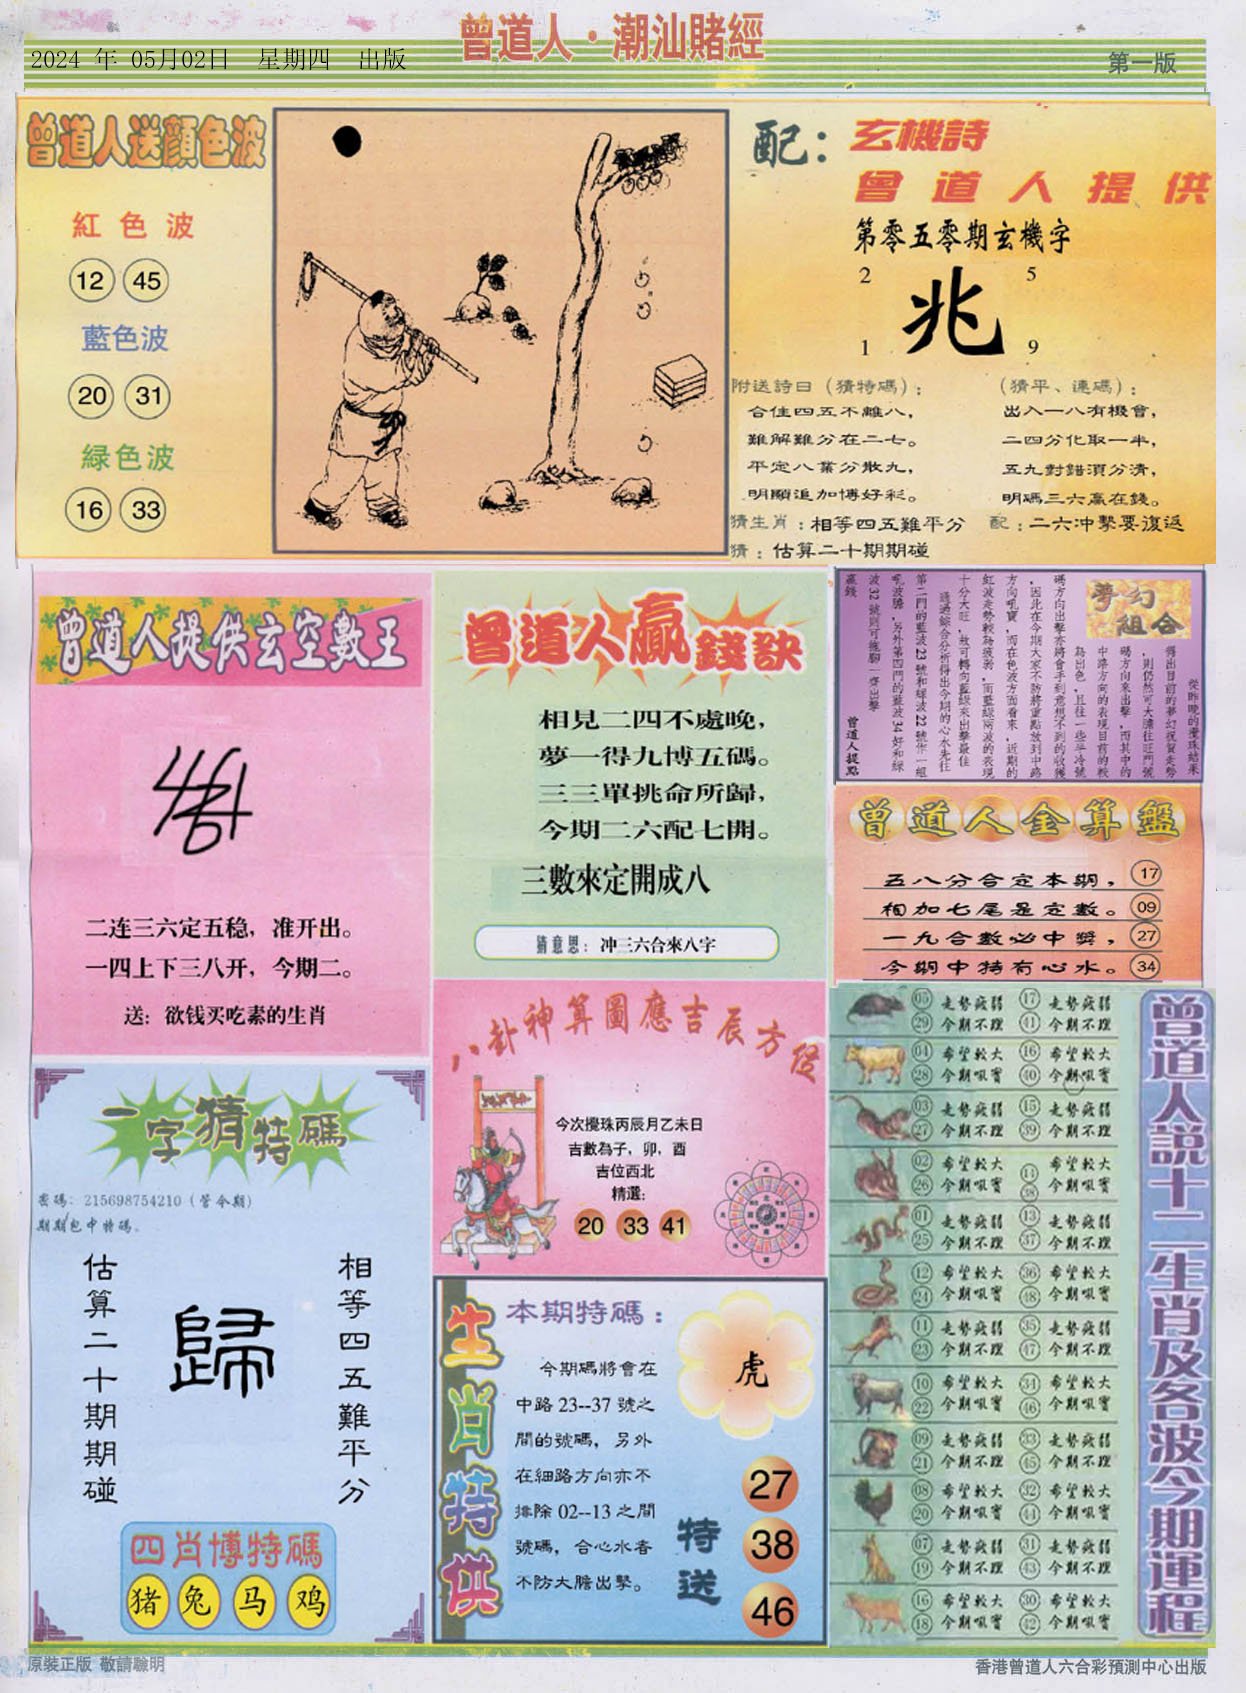 曾道人·潮汕賭經
2024 年 05月02日 星期四 出版
第一版
曾道人送顏色波
紅色波
12 45
藍色波
20 31
緑色波
16 33
配：玄機詩
曾道人提供
第零五零期玄機字
2 5
兆
1 9
附送詩曰（猜特碼）：
合佳四五不離八，
難解難分在二七。
平定八業分散九，
明顯追加博好彩。
（猜平、連碼）：
出入一八有機會，
二四分化取一半，
五九對錯須分清，
明碼三六贏在錢。
猜生肖：相等四五難平分 配：二六冲擊要復返
猜：估算二十期期碰
曾道人提供玄空數王
二连三六定五稳，准开出。
一四上下三八开，今期二。
送：欲钱买吃素的生肖
曾道人贏錢訣
相見二四不處晚，
夢一得九博五碼。
三三單挑命所歸，
今期二六配七開。
三數來定開成八
猜意思：冲三六合來八字
夢幻組合
從昨晚的攪珠結果
得出目前的夢幻祝賀走勢
，則仍然可大膽往旺門號
碼方向來出擊，而其中的
中路方向的表現目前的較
為出色，且往一些半冷號
碼方向出擊亦將會手到意想不到的收獲
，因此在今期大家不防將重點放到中路
方向吼寶，而在色波方面看來，近期的
紅波走勢較為疲弱，而藍緑兩波的表現
十分大旺，故可轉向藍緑來出擊最佳
通過綜合分析得出今期的心水先往
第二門的藍波23號和緑波22號作一組
吼波膽，另外第四門的藍波34好和緑
波32號則可拖腳一齊出擊
贏錢 曾道人提點
曾道人金算盤
五八分合定本期， 17
相加七尾是定數。 09
一九合數必中獎， 27
今期中特有心水。 34
八卦神算圖應吉辰方位
今次攪珠丙辰月乙未日
吉數為子，卯，酉
吉位西北
精選：
20 33 41
一字猜特碼
密碼：215698754210（管今期）
期期包中特碼。
相等四五難平分
歸
估算二十期期碰
四肖博特碼
猪 兔 马 鸡
生肖特供
本期特碼：
今期碼將會在
中路23--37 號之
間的號碼，另外
在細路方向亦不
排除02--13 之間
號碼，合心水者
不防大膽出擊。
虎
特送
27
38
46
曾道人説十二生肖及各波今期運程
05 走勢疲弱 17 走勢疲弱
29 今期不理 41 今期不理
04 希望較大 16 希望較大
28 今期吼寶 40 今期吼寶
03 走勢疲弱 15 走勢疲弱
27 今期不理 39 今期不理
02 希望較大 14 希望較大
26 今期吼寶 38 今期吼寶
01 走勢疲弱 13 走勢疲弱
25 今期不理 37 今期不理
12 希望較大 36 希望較大
24 今期吼寶 48 今期吼寶
11 走勢疲弱 35 走勢疲弱
23 今期不理 47 今期不理
10 希望較大 34 希望較大
22 今期吼寶 46 今期吼寶
09 走勢疲弱 33 走勢疲弱
21 今期不理 45 今期不理
08 希望較大 32 希望較大
20 今期吼寶 44 今期吼寶
07 走勢疲弱 31 走勢疲弱
19 今期不理 43 今期不理
16 希望較大 30 希望較大
18 今期吼寶 42 今期吼寶
原裝正版 敬請聰明
香港曾道人六合彩預測中心出版